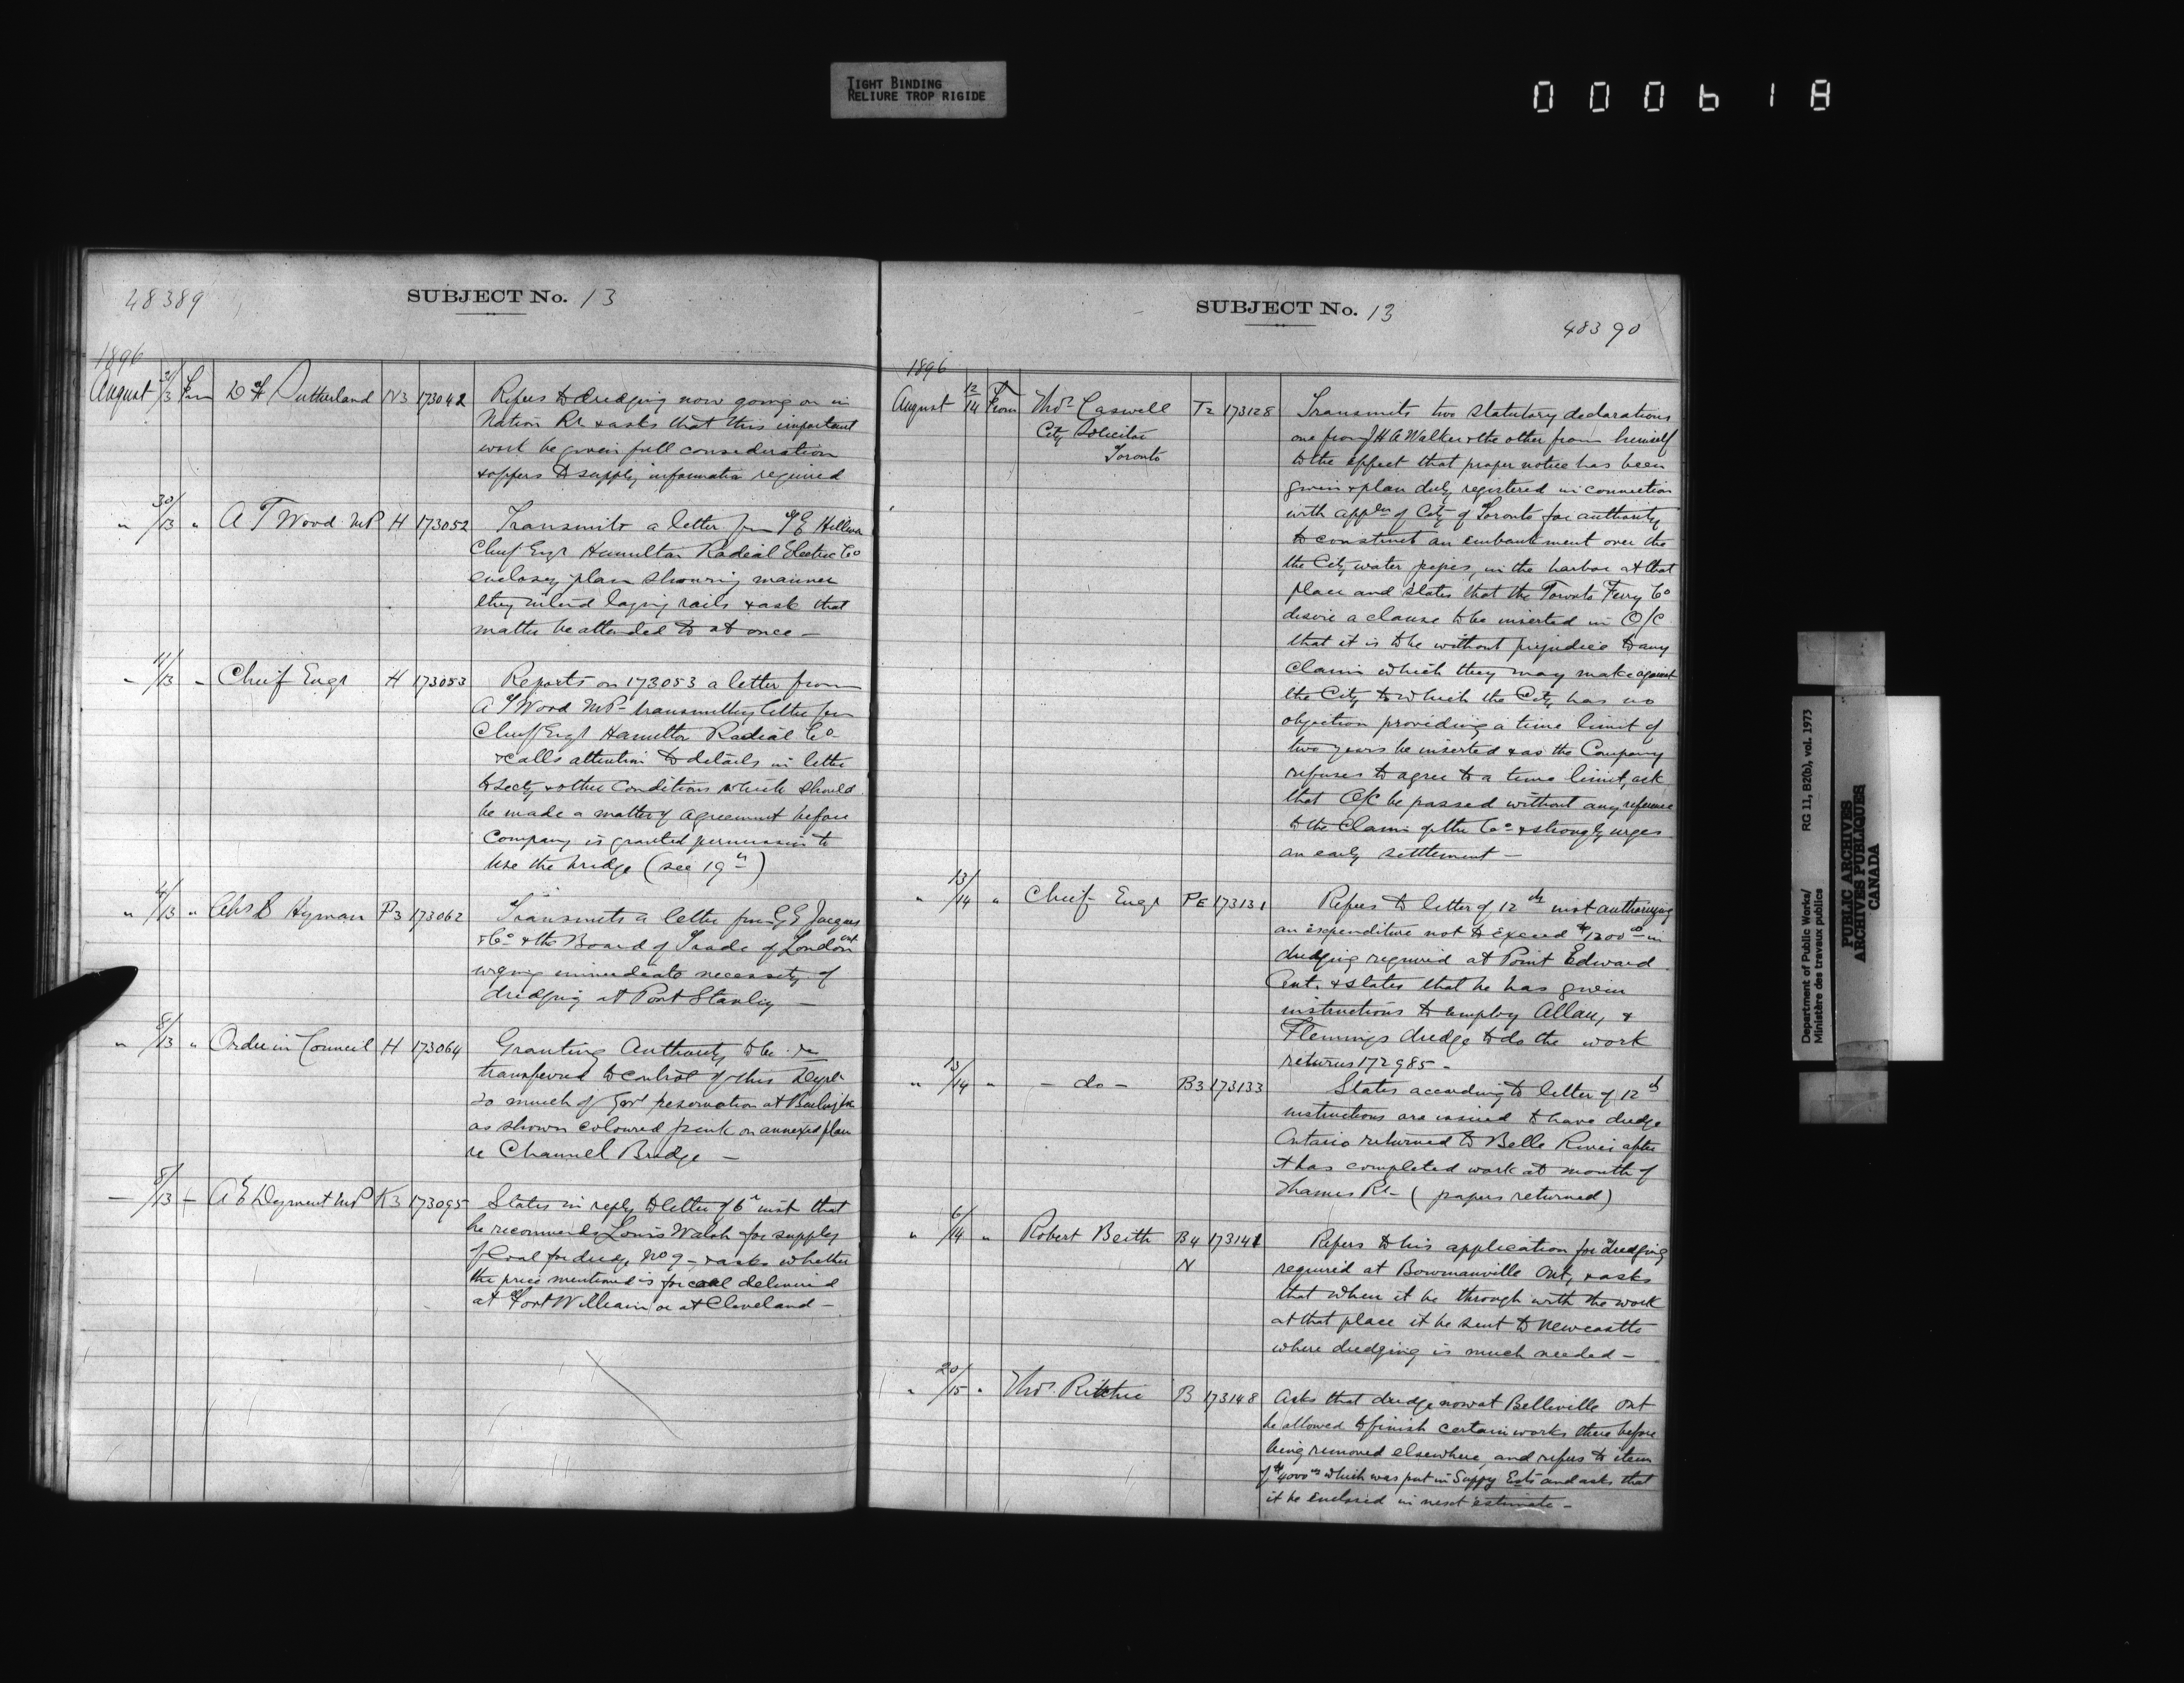 TIGHT BINDING
RELIURE TROP RIGIDE
000618
48389
SUBJECT No. 13
1896
August 31/13 From D H Sutherland N3 173042 Refers to dredging now going on in
Nation Rr & asks that this important
work be given full consideration
& offers to supply information required
" 30/13 " A T Wood MP H 173052 Transmits a letter from
Chief Engr Hamilton Radial Electric Co
enclosing plan showing manner
they intend laying rails & ask that
matter be attended to at once —
" 11/13 " Chief Engr H 173053 Reports on 173053 a letter from
A T Wood MP - transmitting letter from
Chief Engr Hamilton Radial Co
& calls attention to details in letter
to Secty & other Conditions which should
be made a matter of agreement before
Company is granted permission to
use the bridge (see 19th)
" 4/13 " Chs S Hyman P3 173062 Transmits a letter from G G Jacques
& Co & the Board of Trade of London ont
urging immediate necessity of
dredging at Port Stanley —
" 8/13 " Order in Council H 173064 Granting Authority to be
transferred to control of this Dept
so much of Govt reservation at Burlington
as shown coloured pink on annexed plan
re Channel Bridge —
— 8/13 — A E Dyment MP K3 173095 States in reply to letter of 6th inst that
he recommends Louis Walsh for supply
of Coal for dredge No 9 - & asks whether
the price mentioned is for coal delivered
at Fort William or at Cleveland —
SUBJECT No. 13
48390
1896
August 12/14 From Thos Caswell T2 173128 Transmits two statutory declarations
City Solicitor one from J H A Walker & the other from himself
Toronto to the effect that proper notice has been
given & plan duly registered in connection
with appln of City of Toronto for authority
to construct an embankment over the
the City water pipes, in the harbor at that
place and states that the Toronto Ferry Co
desire a clause to be inserted in O/C
that it is to be without prejudice to any
claim which they may make against
the City to which the City has no
objection providing a time limit of
two years be inserted & as the Company
refuses to agree to a time limit, ask
that O/C be passed without any reference
to the Claim of the Co & strongly urges
an early settlement —
" 13/14 " Chief Engr PE 173131 Refers to letter of 12th inst authorizing
an expenditure not to exceed $1200 00 in
dredging required at Point Edward
Ont. & states that he has given
instructions to employ Allan, &
Flemings dredge to do the work
returns 172985 -
" 13/14 " — do — B3 173133 States according to letter of 12th
instructions are issued to have dredge
Ontario returned to Belle River after
it has completed work at mouth of
Thames Rr - (papers returned)
" 6/14 " Robert Beith B4 173141 Refers to his application for dredging
N required at Bowmanville Ont, & asks
that when it be through with the work
at that place it be sent to Newcastle
where dredging is much needed —
" 20/15 " Thos Ritchie B 173148 Asks that dredge now at Belleville Ont
be allowed to finish certain works there before
being removed elsewhere, and refers to item
of $4000 00 which was put in Suppy Ests and asks that
it be enclosed in next estimate —
Department of Public Works/
Ministère des travaux publics
RG 11, B2(b), vol. 1973
PUBLIC ARCHIVES
ARCHIVES PUBLIQUES
CANADA